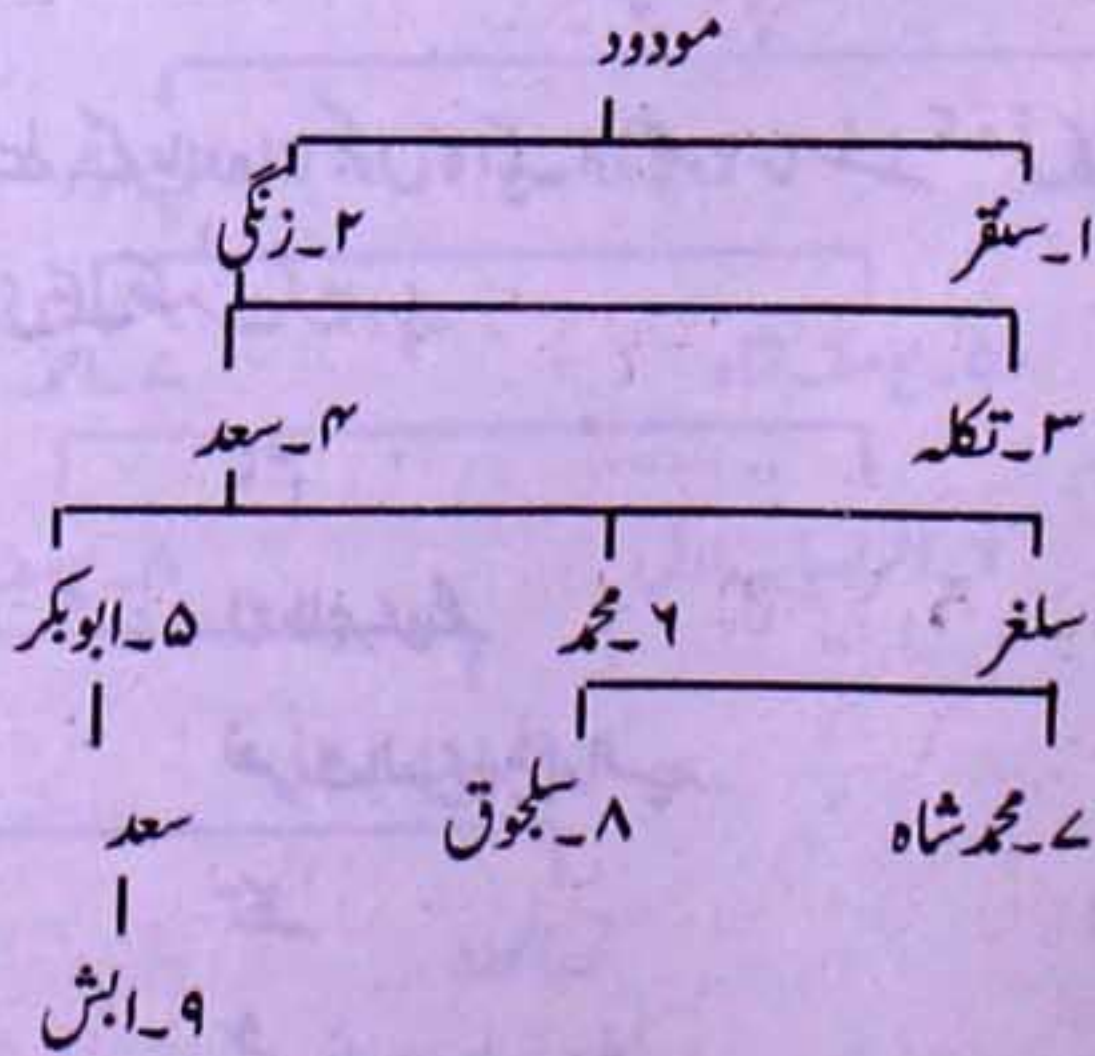 مودود
۱۔سنقر ۲۔زنگی
۳۔تکلہ ۴۔سعد
سلغر ۶۔محمد ۵۔ابوبکر
۷۔محمد شاہ ۸۔سلجوق سعد
۹۔ابش